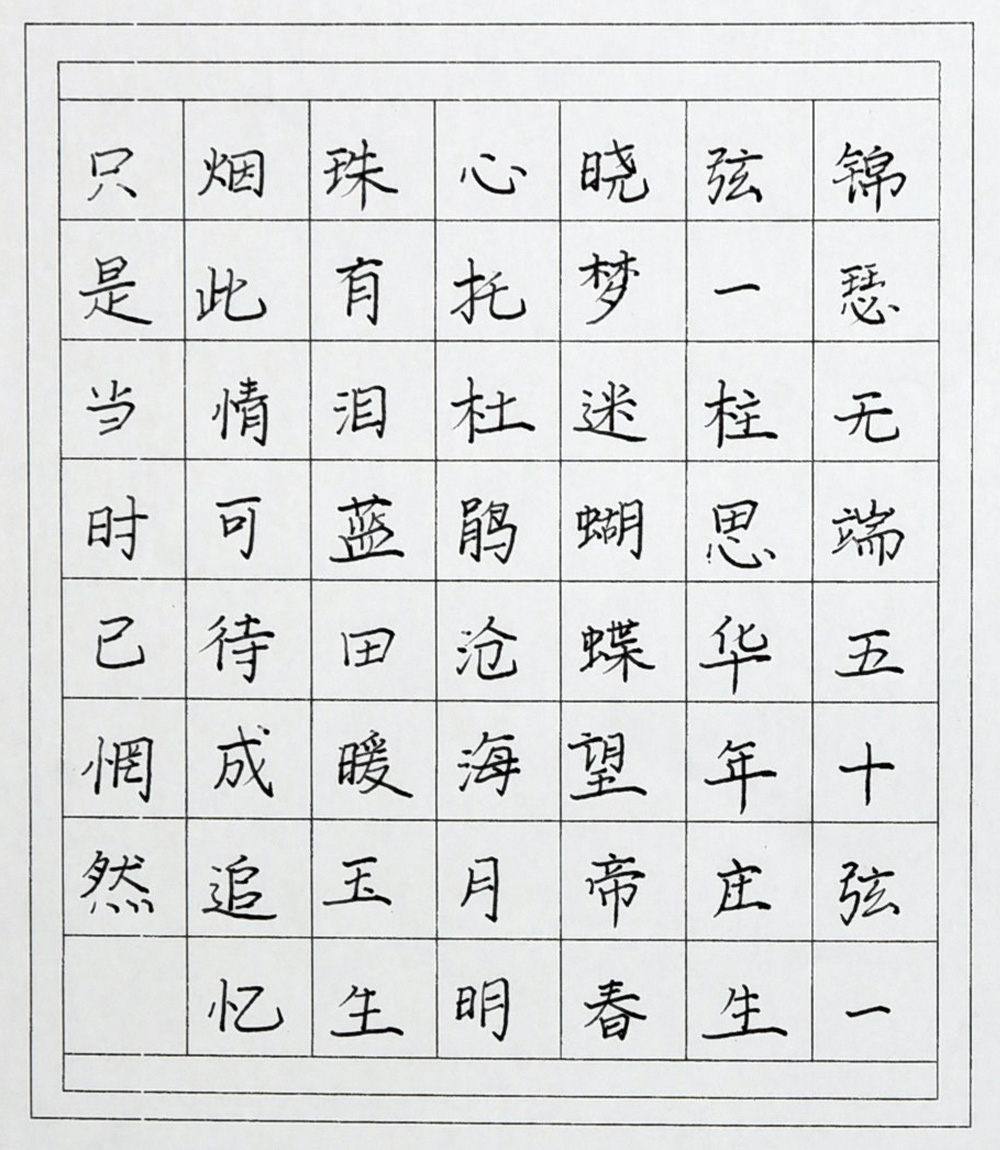 锦瑟无端五十弦一
弦一柱思华年庄生
晓梦迷蝴蝶望帝春
心托杜鹃沧海月明
珠有泪蓝田暖玉生
烟此情可待成追忆
只是当时已惘然